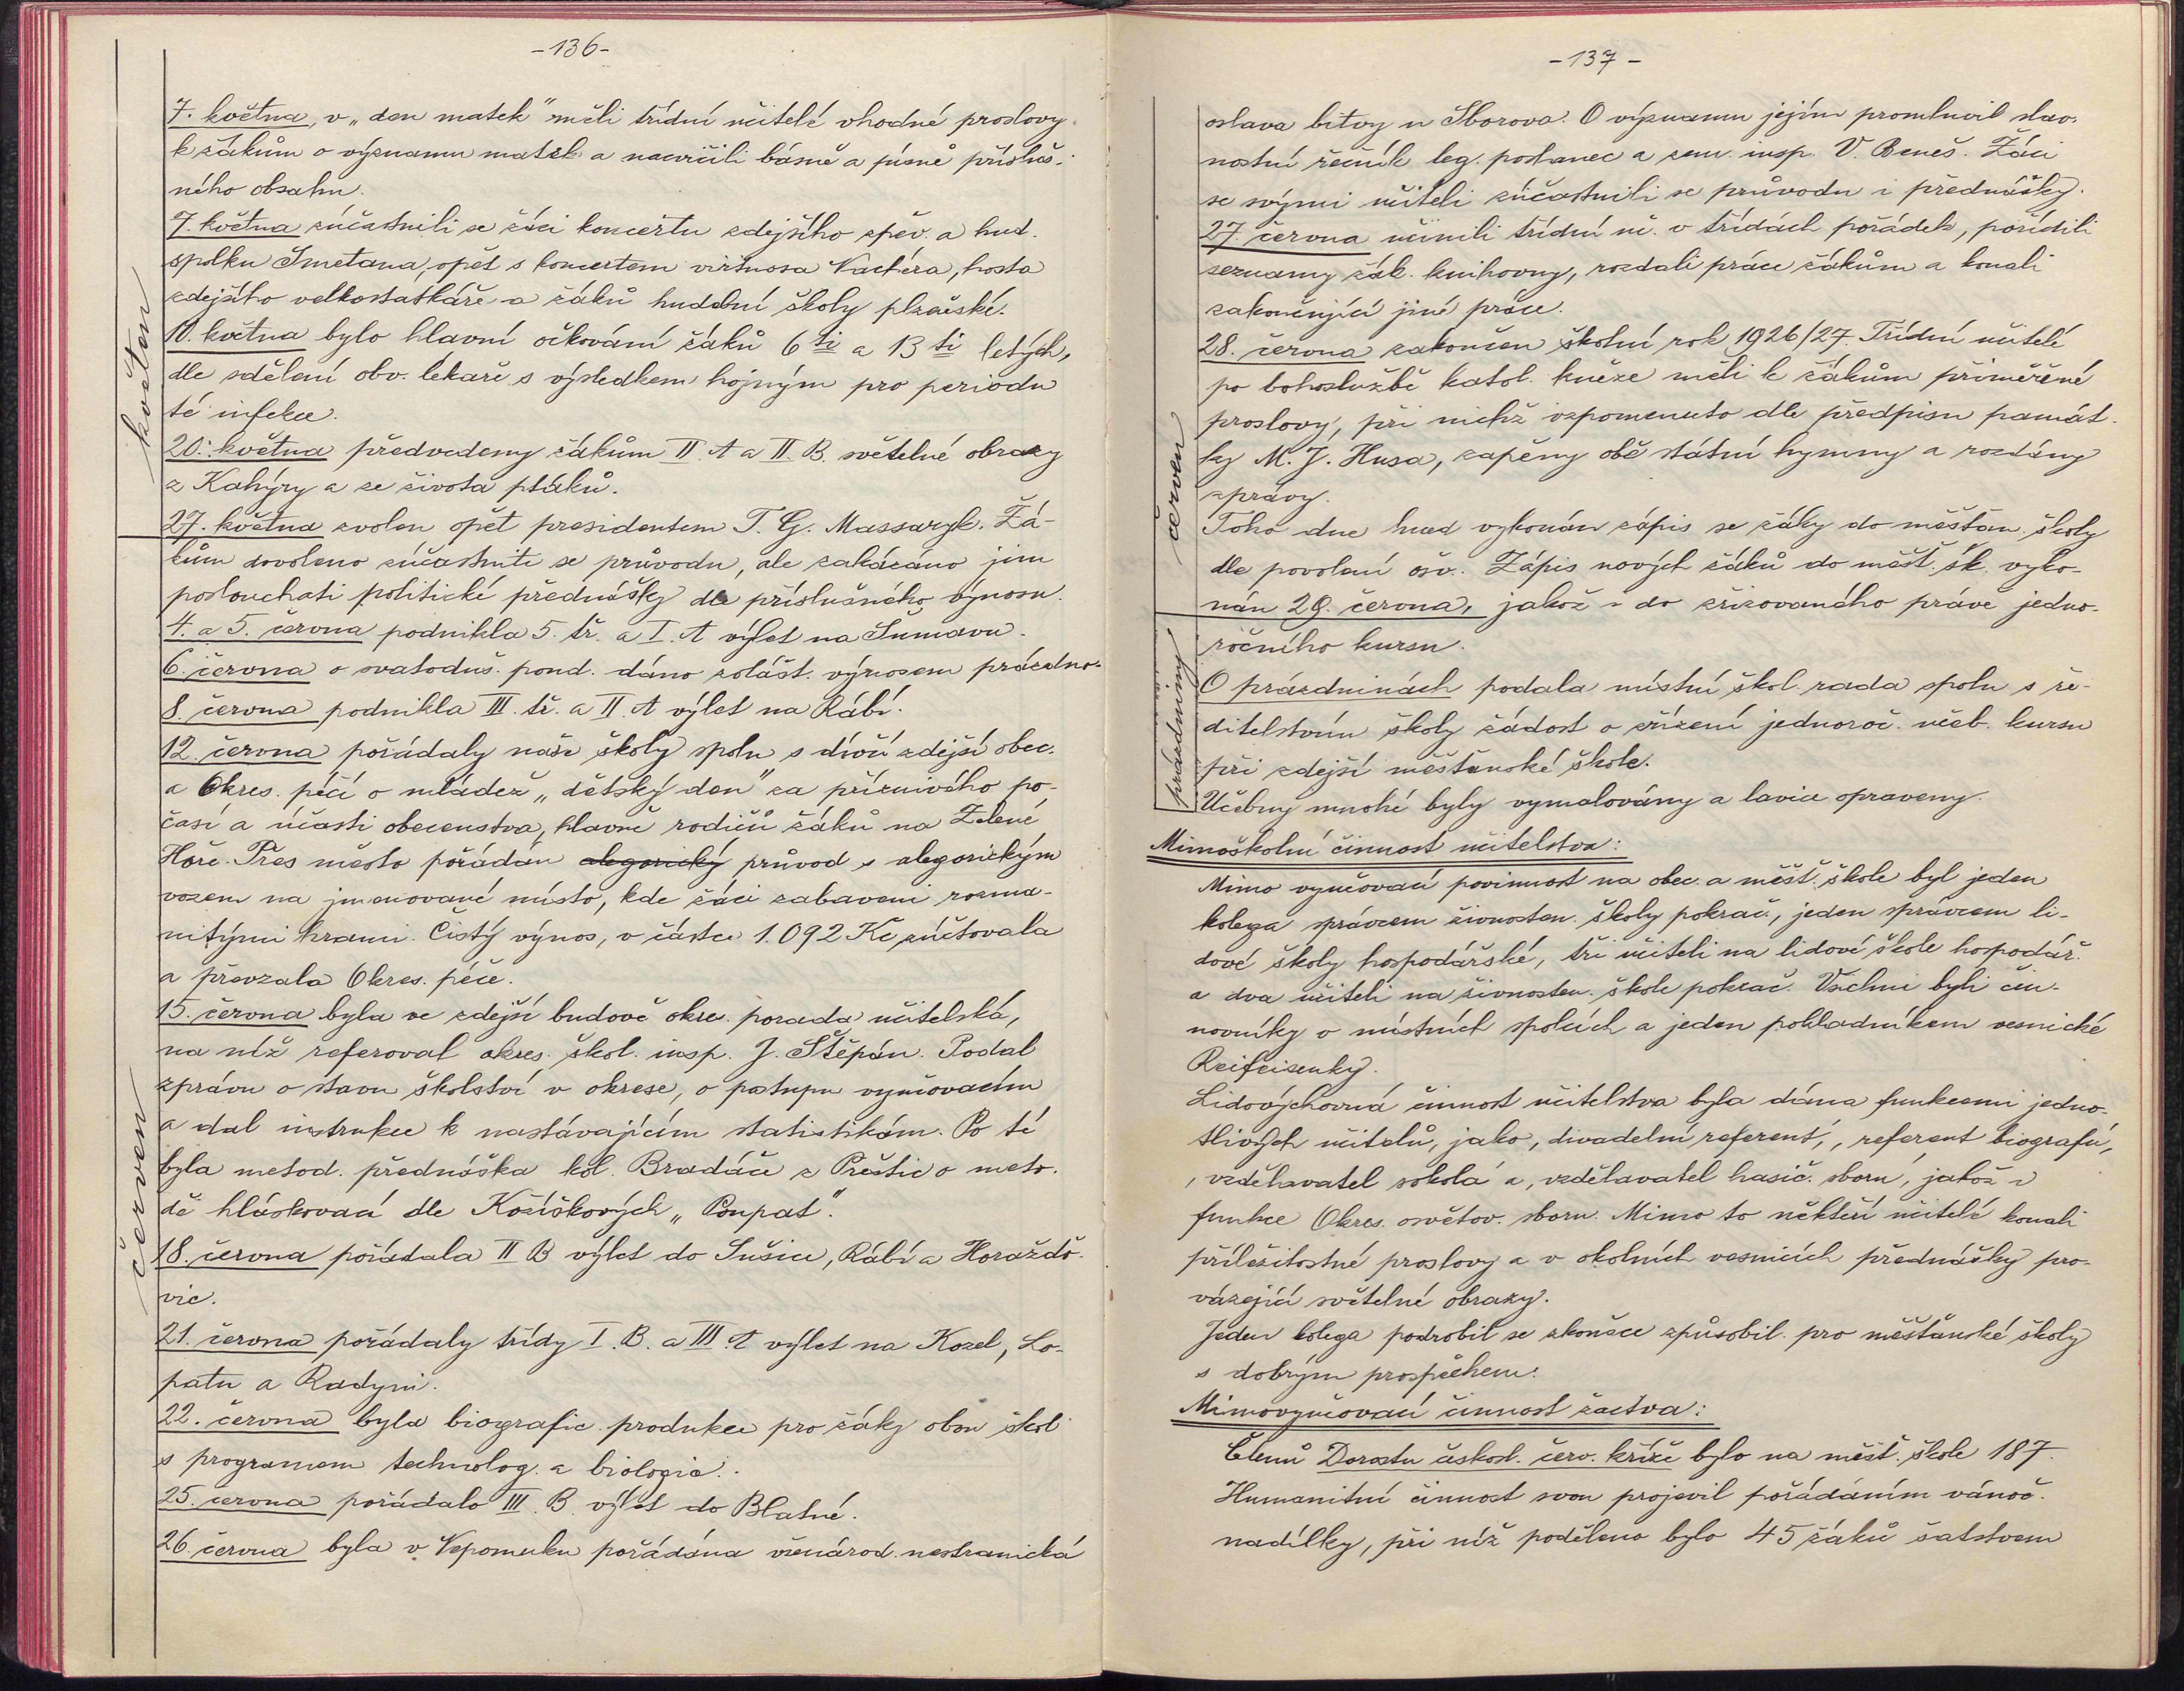 -136-
květen
7. května, v „den matek" měli třídní učitelé vhodné proslovy
k žákům o významu matek a nacvičili básně a písně přísluš-
ného obsahu.
7. května súčastnili se žáci koncertu zdejšího zpěv. a hud.
spolku Smetana, opět s koncertem virtuosa Vachéra, hosta
zdejšího velkostatkáře a žáků hudební školy plzeňské.
10. května bylo hlavní očkování žáků 6ti a 13ti letých,
dle sdělení obv. lékaře s výsledkem hojným pro periodu
té infekce.
20. května předvedeny žákům II. A a II. B. světelné obrazy
z Kahýry a ze života ptáků.
27. května zvolen opět presidentem T. G. Massaryk. Žá-
kům dovoleno súčastniti se průvodu, ale zakázáno jim
poslouchati politické přednášky dle příslušného výnosu.
červen
4. a 5. června podnikla 5. tř. a I. A výlet na Šumavu.
6. června o svatoduš. pond. dáno zvlášt. výnosem prázdno.
8. června podnikla III. tř. a II. A výlet na Rábí.
12. června pořádaly naše školy spolu s dívčí zdejší obec.
a Okres. péčí o mládež „dětský den" za příznivého po-
časí a účasti obecenstva, hlavně rodičů žáků na Zelené
Hoře. Přes město pořádán alegorický průvod s alegorickým
vozem na jmenované místo, kde žáci zabaveni rozma-
nitými hrami. Čistý výnos, v částce 1.092 Kč zúčtovala
a převzala Okres. péče.
15. června byla ve zdejší budově okre. porada učitelská,
na níž referoval okres. škol. insp. J. Štěpán. Podal
zprávu o stavu školství v okrese, o postupu vyučovacím
a dal instrukce k nastávajícím statistikám. Po té
byla metod. přednáška kol. Bradáče z Přeštic o meto-
dě hláskovací dle Kožíškových „Poupat".
18. června pořádala II B výlet do Sušice, Rábí a Horaždo-
vic.
21. června pořádaly třídy I. B. a III. A výlet na Kozel, Lo-
patu a Radyni.
22. června byla biografic. produkce pro žáky obou škol
s programem technolog. a biologic.
25. června pořádalo III. B. výlet do Blatné.
26. června byla v Nepomuku pořádána všenárod. nestranická
-137-
červen
oslava bitvy u Sborova. O významu jejím promluvil slav.
nostní řečník leg. poslanec a zem. insp. V. Beneš. Žáci
se svými učiteli súčastnili se průvodu i přednášky.
27. června učinili třídní uč. v třídách pořádek, pořídili
seznamy žák. knihovny, rozdali práce žákům a konali
zakončující jiné práce.
28. června zakončen školní rok 1926/27. Třídní učitelé
po bohoslužbě katol. kněze měli k žákům přiměřené
proslovy, při nichž vzpomenuto dle předpisu památ.
ky M. J. Husa, zapěny obě státní hymny a rozdány
zprávy.
Toho dne hned vykonán zápis se žáky do měšťan. školy
dle povolení ošv. Zápis nových žáků do měšť. šk. vyko-
nán 29. června, jakož i do zřizovaného právě jedno-
ročního kursu.
prázdniny
O prázdninách podala místní škol. rada spolu s ře-
ditelstvím školy žádost o zřízení jednoroč. učeb. kursu
při zdejší měšťanské škole.
Učebny mnohé byly vymalovány a lavice opraveny.
Mimoškolní činnost učitelstva:
Mimo vyučovací povinnost na obec. a měšť. škole byl jeden
kolega správcem živnosten. školy pokrač., jeden správcem li-
dové školy hospodářské, tři učiteli na lidové škole hospodář.
a dva učiteli na živnosten. škole pokrač. Všichni byli čin-
novníky v místních spolcích a jeden pokladníkem vesnické
Reifeisenky.
Lidovýchovná činnost učitelstva byla dána funkcemi jedno-
tlivých učitelů, jako, divadelní referent', ,referent biografu',
,vzdělavatel sokola' a ,vzdělavatel hasič. sboru', jakož i
funkce Okres. osvětov. sboru. Mimo to někteří učitelé konali
příležitostné proslovy a v okolních vesnicích přednášky pro-
vázející světelné obrazy.
Jeden kolega podrobil se zkoušce způsobil. pro měšťanské školy
s dobrým prospěchem.
Mimovyučovací činnost žactva:
Členů Dorostu českosl. červ. kříže bylo na měšť. škole 187.
Humanitní činnost svou projevil pořádáním vánoč.
nadílky, při níž poděleno bylo 45 žáků šatstvem